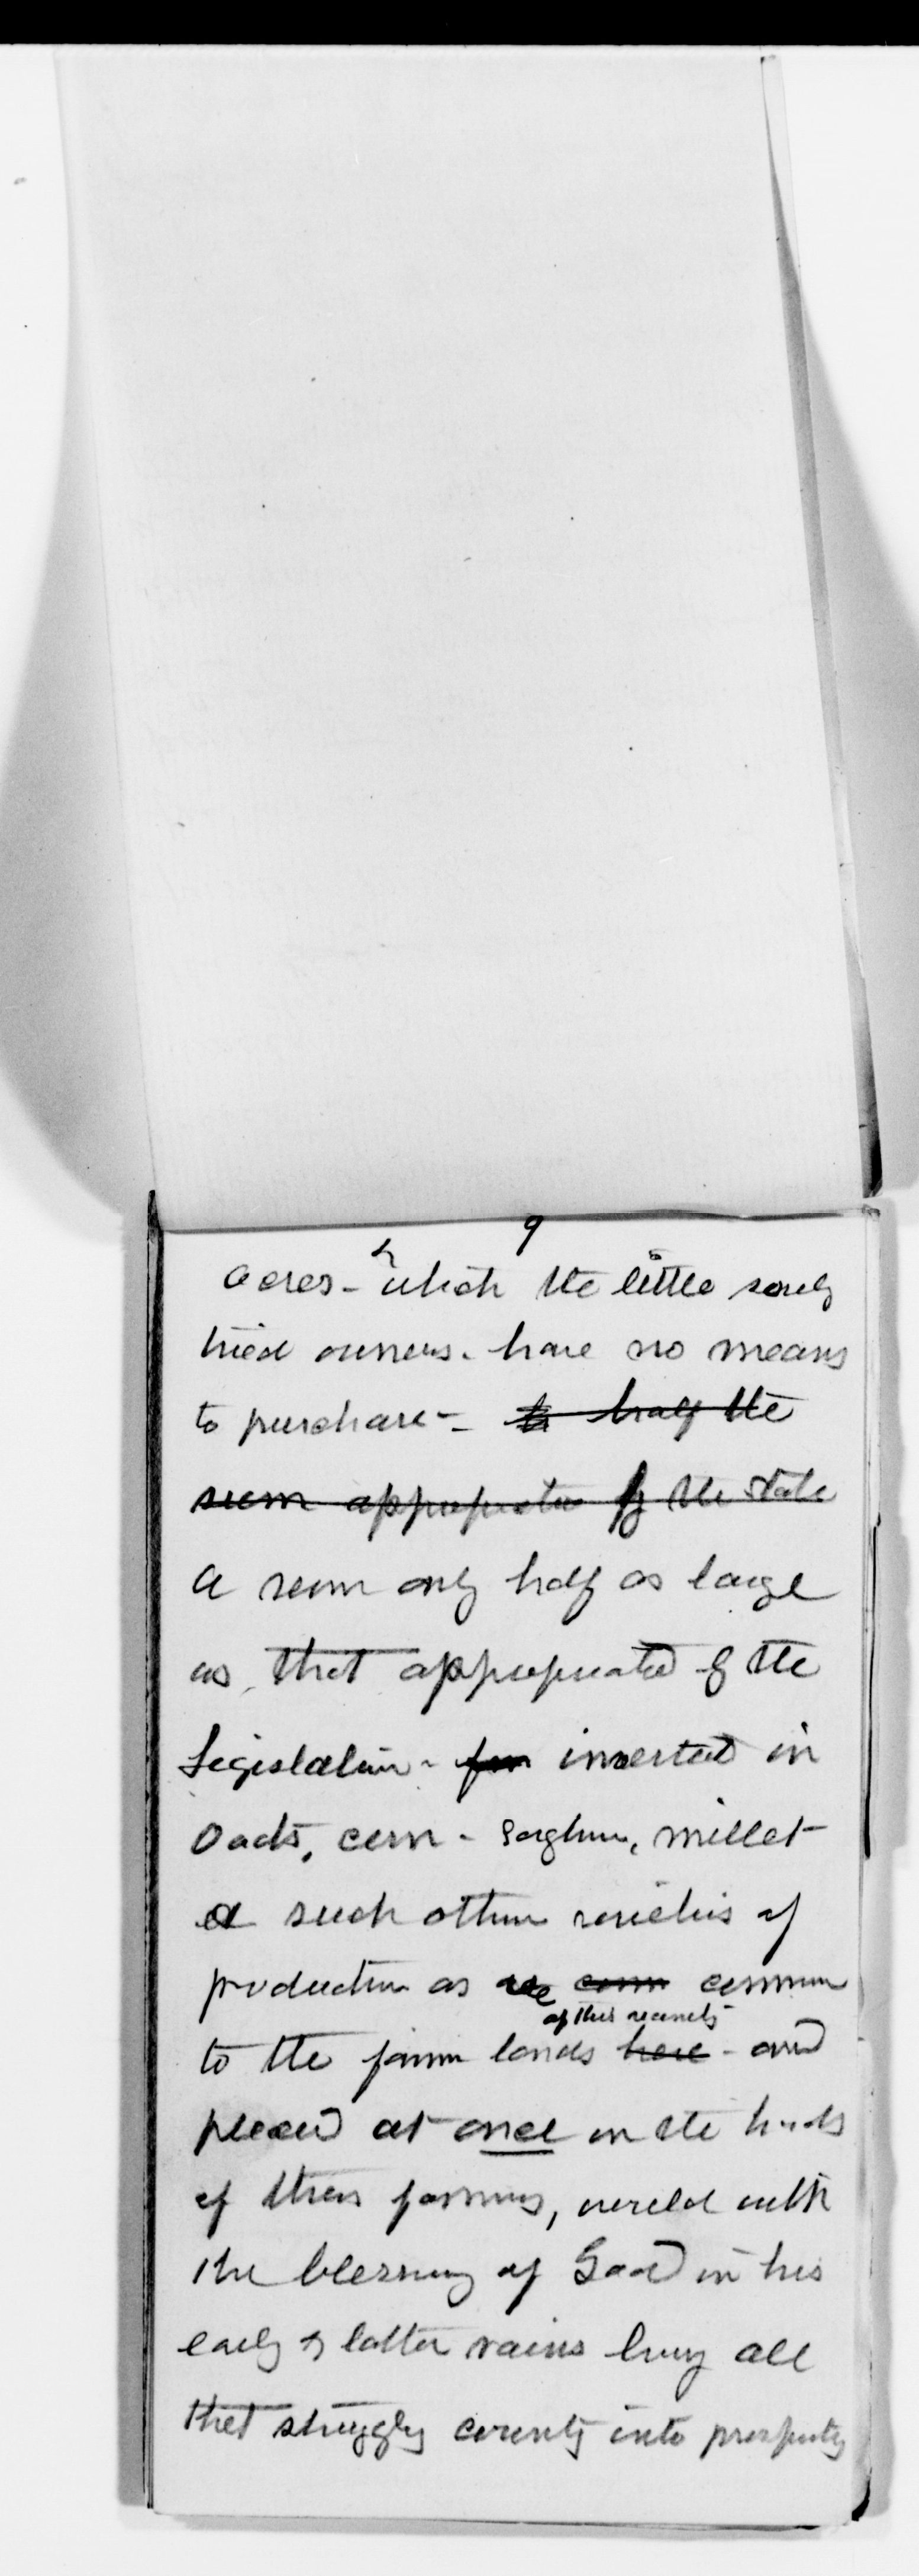 9
acres - which the little sorely
tried owners - have no means
to purchase - to half the
sum appropriated by the State
A sum only half as large
as that appropriated by the
Legislature - for invested in
Oats, corn - Sorghum, millet
& such other varieties of
production as are com common
of this county
to the farm lands here - and
placed at once in the hands
of these farmers, would with
the blessing of God in his
early & latter rains bring all
that struggling county into prosperity